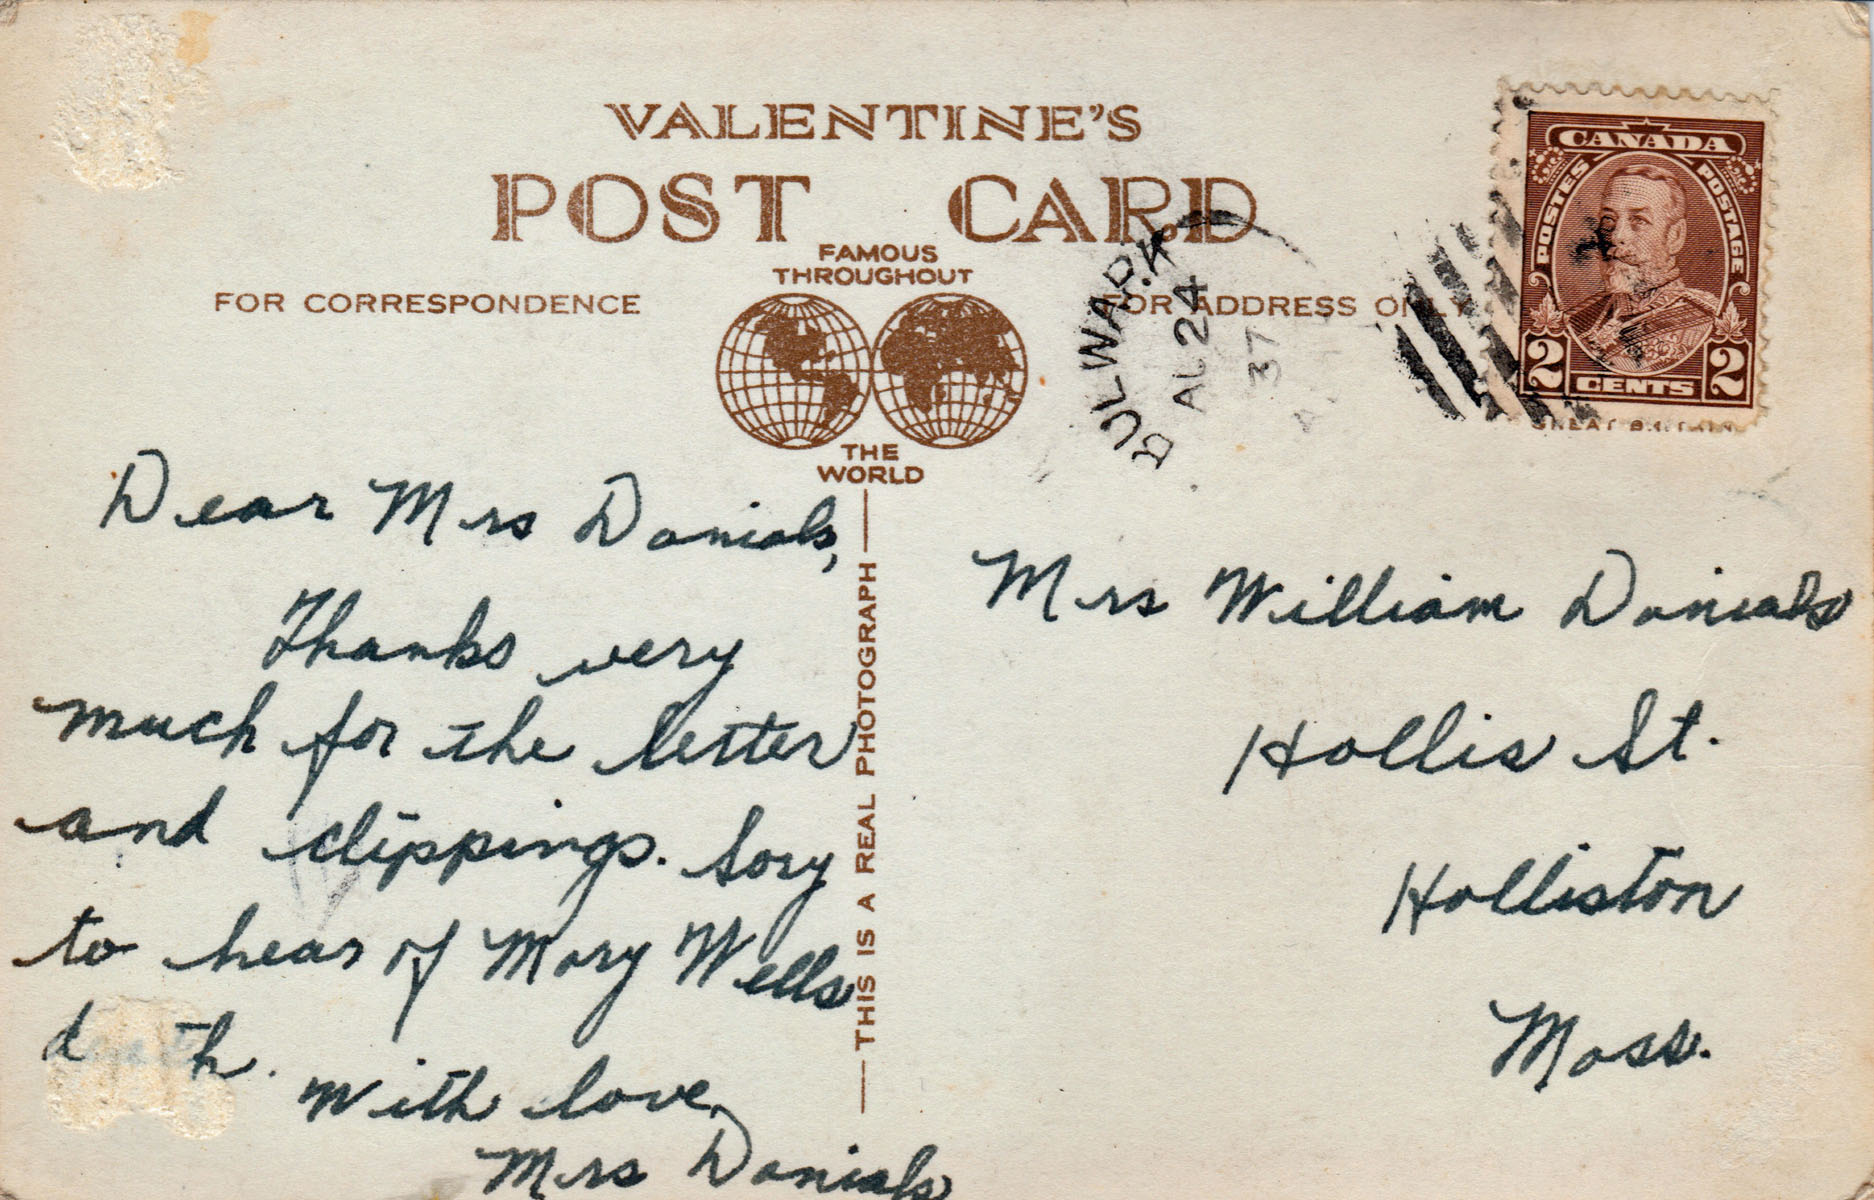 VALENTINE'S
POST CARD
FAMOUS
THROUGHOUT
FOR CORRESPONDENCE
FOR ADDRESS ONLY
THE
WORLD
THIS IS A REAL PHOTOGRAPH
BULWARK
AL 24
37
CANADA
POSTES POSTAGE
2 CENTS 2
Dear Mrs Danials,
Thanks very
much for the letter
and clippings. Sory
to hear of Mary Wells
death.
With love,
Mrs Danials
Mrs William Danials
Hollis St.
Holliston
Mass.